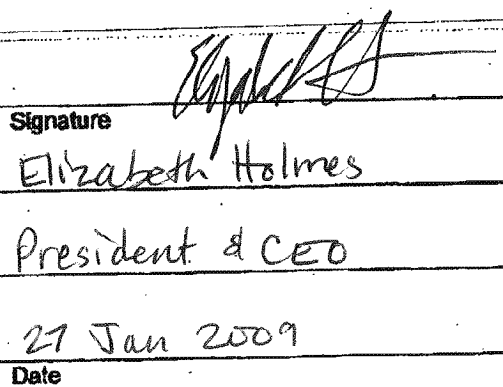 Elizabeth
Signature
Elizabeth Holmes
President & CEO
27 Jan 2009
Date